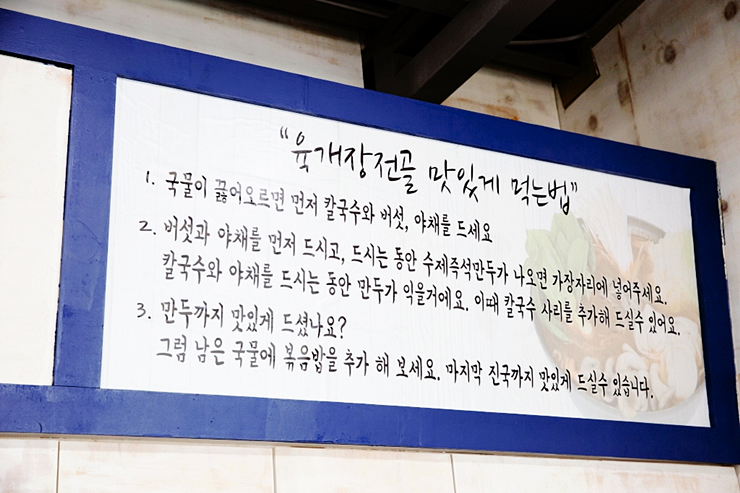 “육개장전골 맛있게 먹는법”
1. 국물이 끓어오르면 먼저 칼국수와 버섯, 야채를 드세요
2. 버섯과 야채를 먼저 드시고, 드시는 동안 수제즉석만두가 나오면 가장자리에 넣어주세요.
칼국수와 야채를 드시는 동안 만두가 익을거에요. 이때 칼국수 사리를 추가해 드실수 있어요.
3. 만두까지 맛있게 드셨나요?
그럼 남은 국물에 볶음밥을 추가 해 보세요. 마지막 진국까지 맛있게 드실수 있습니다.